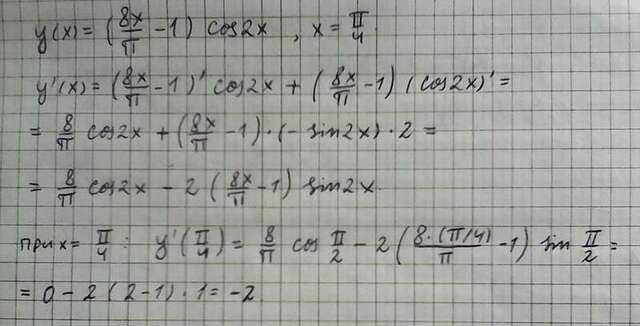 y(x) = (8x/π − 1) cos2x , x = π/4
y'(x) = (8x/π − 1)' cos2x + (8x/π − 1) (cos2x)' =
= 8/π cos2x + (8x/π − 1) · (− sin2x) · 2 =
= 8/π cos2x − 2 (8x/π − 1) sin2x.
при x = π/4 : y'(π/4) = 8/π cos π/2 − 2 (8·(π/4)/π − 1) sin π/2 =
= 0 − 2 (2−1) · 1 = −2